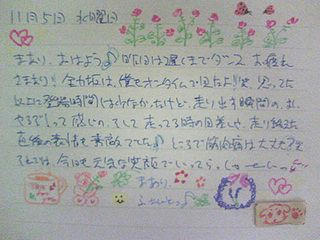 11月5日 水曜日
まあり、おはよう♪ 昨日は遅くまでダンス お疲え
さまあり!! 全力坂は、僕もオンタイムで見たよ!! 笑 思ってた
より登場時間は少なかったけど、走り出す瞬間の、お、
やるぞ!って感じの、そして走ってる時の目差しや、走り終えた
直後の表情も素敵でした♪ ところで筋肉痛は大丈夫?
それでは、今日も元気な笑顔でいってら、しゃーい
まあり